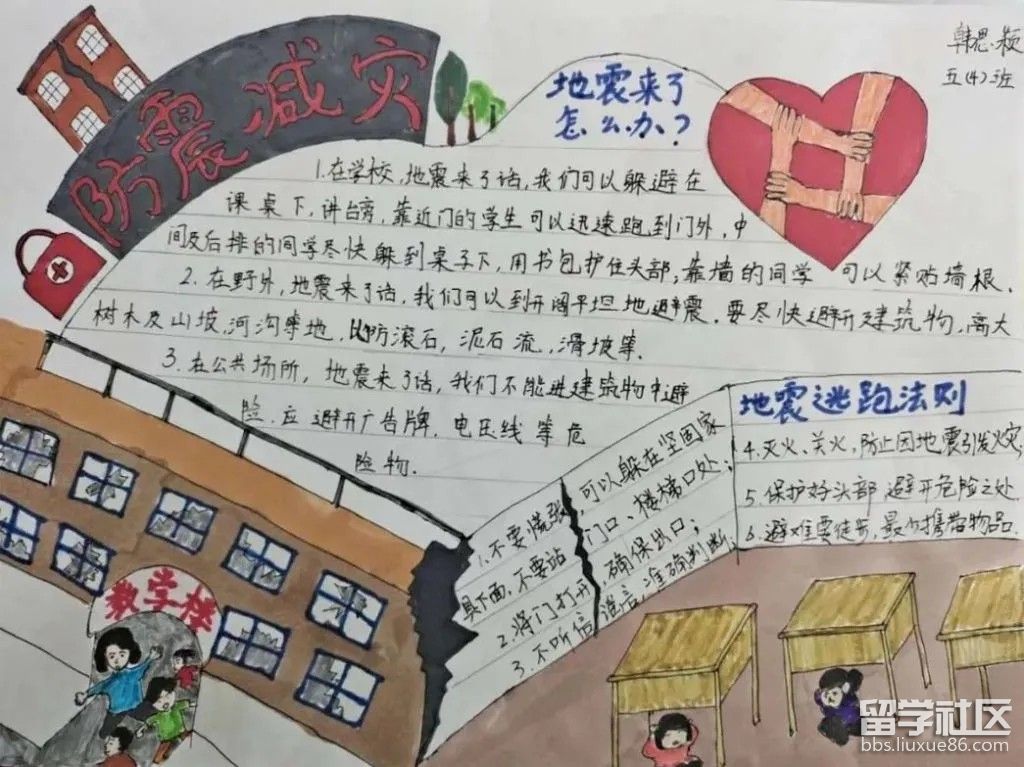 防震减灾
韩思颖
五(4)班
地震来了
怎么办?
1.在学校,地震来了话,我们可以躲避在
课桌下,讲台旁,靠近门的学生可以迅速跑到门外,中
间及后排的同学尽快躲到桌子下,用书包护住头部,靠墙的同学 可以紧贴墙根.
2.在野外,地震来了话,我们可以到开阔平坦地避震.要尽快避开建筑物,高大
树木及山坡,河沟等地,以防滚石,泥石流,滑坡等.
3.在公共场所,地震来了话,我们不能进建筑物中避
险.应避开广告牌.电压线等危
险物.
1.不要慌张,可以躲在坚固家
具下面,不要站门口、楼梯口处;
2.将门打开,确保出口;
3.不听信谣言,准确判断;
地震逃跑法则
4.灭火、关火,防止因地震引发火灾;
5.保护好头部 避开危险之处
6.避难要徒步,最少携带物品
教学楼
留学社区
bbs.liuxue86.com